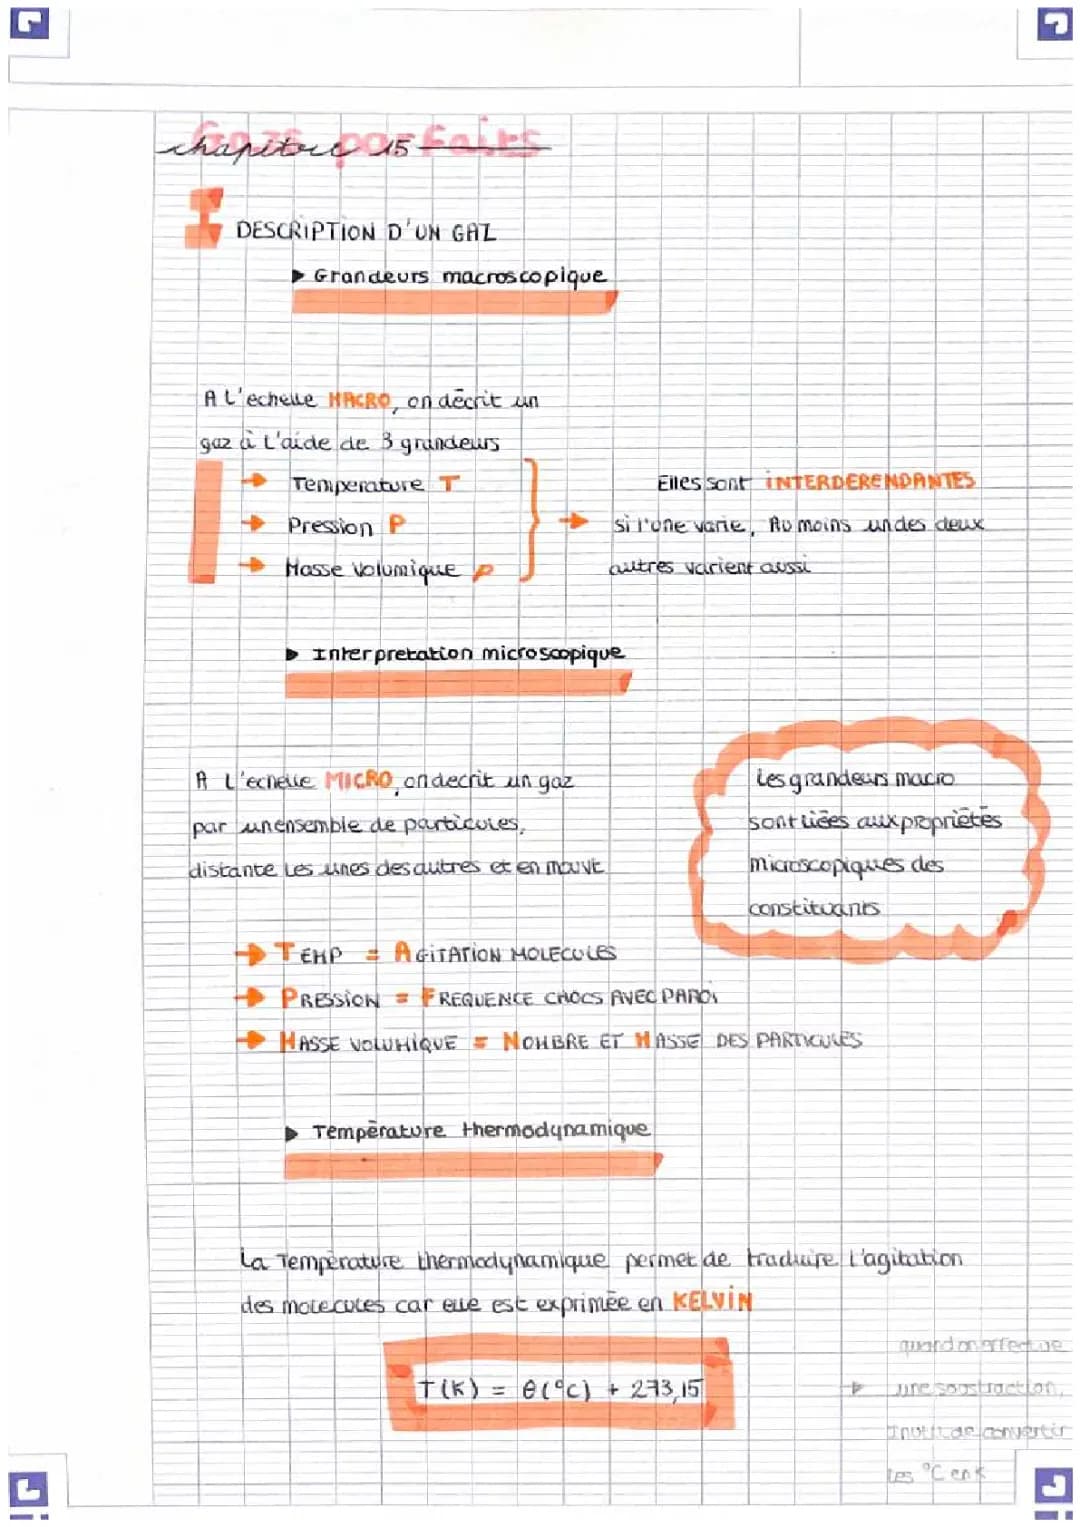 Gaz parfaits
chapitre 15
I DESCRIPTION D'UN GAZ
▶ Grandeurs macroscopique
A l'echelle MACRO, on décrit un
gaz à l'aide de 3 grandeurs
→ Temperature T
→ Pression P
→ Masse volumique ρ
→ Elles sont INTERDEPENDANTES
si l'une varie, Au moins un des deux
autres varient aussi
▶ Interpretation microscopique
A L'echelle MICRO, on decrit un gaz
par un ensemble de particules,
distante les unes des autres et en mouvt
Les grandeurs macro
sont liées aux propriétés
microscopiques des
constituants
→ TEMP = AGITATION MOLECULES
→ PRESSION = FREQUENCE CHOCS AVEC PAROI
→ MASSE VOLUMIQUE = NOMBRE ET MASSE DES PARTICULES
▶ Température thermodynamique
La Température thermodynamique permet de traduire l'agitation
des molecules car elle est exprimée en KELVIN
T(K) = θ(°C) + 273,15
quand on effectue
▶ une soustraction,
Inutile de convertir
les °C en K